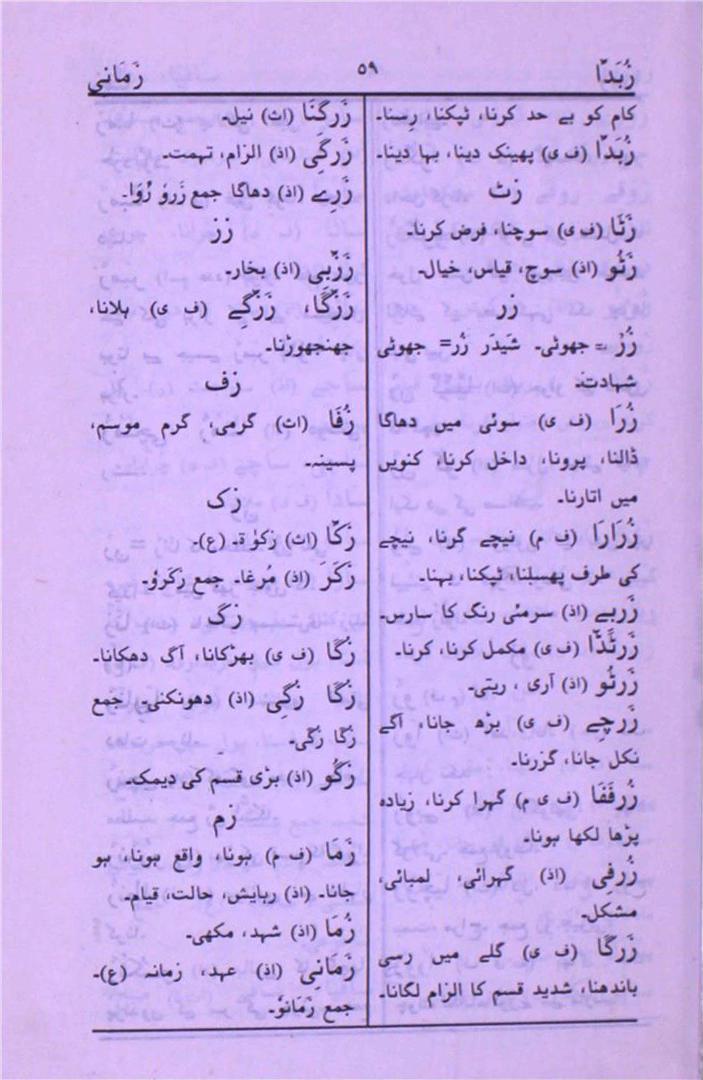 زُبَدّا
۵۹
زَمَانی
کام کو بے حد کرنا، ٹپکنا، رِسنا۔
زُبَدّا (ف ی) پھینک دینا، بہا دینا۔
زٹ
زَٹَا (ف ی) سوچنا، فرض کرنا۔
زَٹُو (اذ) سوچ، قیاس، خیال۔
زر
زُرْ = جھوٹی۔ شَیدَر زُر= جھوٹی
شہادت۔
زُرَا (ف ی) سوئی میں دھاگا
ڈالنا، پرونا، داخل کرنا، کنویں
میں اتارنا۔
زُرَارَا (ف م) نیچے گرنا، نیچے
کی طرف پھسلنا، ٹپکنا، بہنا۔
زَربے (اذ) سرمئی رنگ کا سارس۔
زَرتَدّا (ف ی) مکمل کرنا، کرنا۔
زَرتُو (اذ) آری، ریتی۔
زَرچے (ف ی) بڑھ جانا، آگے
نکل جانا، گزرنا۔
زُرفَفَا (ف ی م) گہرا کرنا، زیادہ
پڑھا لکھا ہونا۔
زُرفِی (اذ) گہرائی، لمبائی،
مشکل۔
زَرگَا (ف ی) گلے میں رسی
باندھنا، شدید قسم کا الزام لگانا۔
زَرگِنَا (اث) نیل۔
زَرگِی (اذ) الزام، تہمت۔
زَرِے (اذ) دھاگا جمع زَروَ رُوَا۔
زز
زَزَّبِی (اذ) بخار۔
زَزَّگَا، زَزَّگِے (ف ی) ہلانا،
جھنجھوڑنا۔
زف
زُفَا (اث) گرمی، گرم موسم،
پسینہ۔
زک
زَکَّا (اث) زکوٰۃ۔ (ع)۔
زَکَرَ (اذ) مُرغا۔ جمع زَکَروُ۔
زگ
زُگَا (ف ی) بھڑکانا، آگ دھکانا۔
زُگَا زُگِی (اذ) دھونکنی۔ جمع
زُگَا زُگَی۔
زَگُو (اذ) بڑی قسم کی دیمک۔
زم
زَمَا (ف م) ہونا، واقع ہونا، ہو
جانا۔ (اذ) رہایش، حالت، قیام۔
زُمَا (اذ) شہد، مکھی۔
زَمَانِی (اذ) عہد، زمانہ (ع)۔
جمع زَمَانَوُ۔